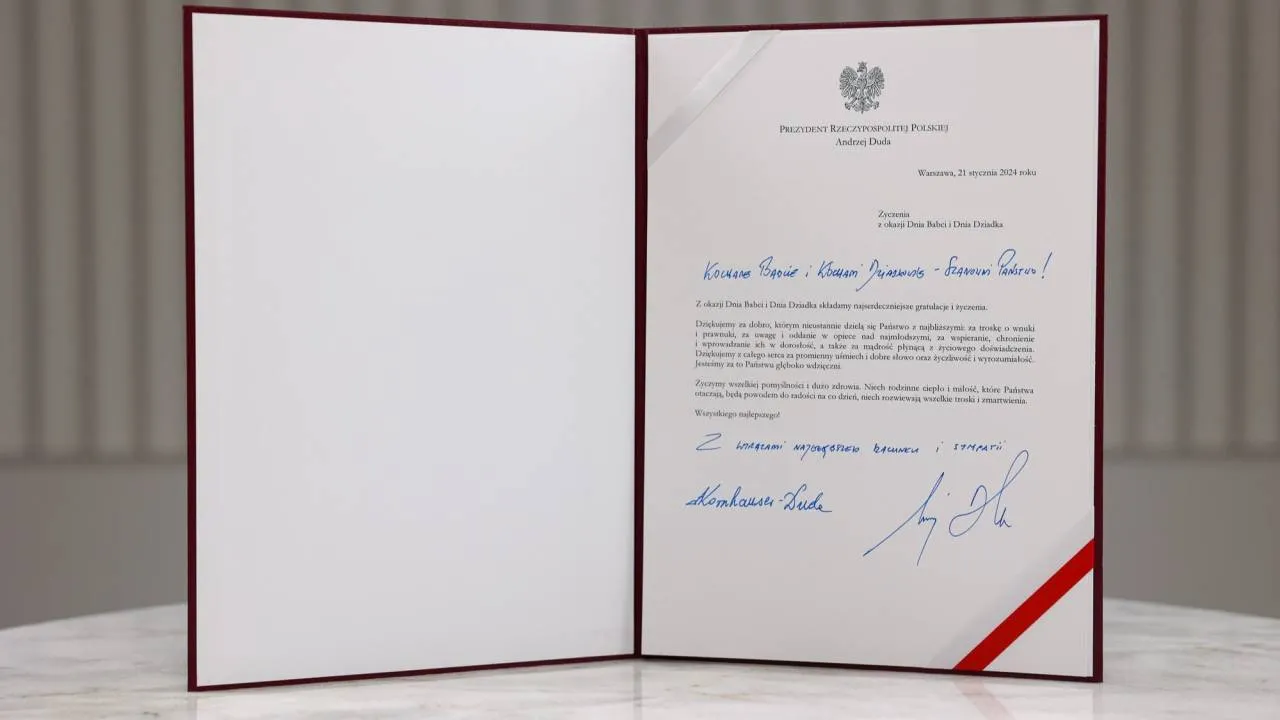 PREZYDENT RZECZYPOSPOLITEJ POLSKIEJ
Andrzej Duda
Warszawa, 21 stycznia 2024 roku
Życzenia
z okazji Dnia Babci i Dnia Dziadka
Kochane Babcie i Kochani Dziadkowie – Szanowni Państwo!
Z okazji Dnia Babci i Dnia Dziadka składamy najserdeczniejsze gratulacje i życzenia.
Dziękujemy za dobro, którym nieustannie dzielą się Państwo z najbliższymi: za troskę o wnuki
i prawnuki, za uwagę i oddanie w opiece nad najmłodszymi, za wspieranie, chronienie
i wprowadzanie ich w dorosłość, a także za mądrość płynącą z życiowego doświadczenia.
Dziękujemy z całego serca za promienny uśmiech i dobre słowo oraz życzliwość i wyrozumiałość.
Jesteśmy za to Państwu głęboko wdzięczni.
Życzymy wszelkiej pomyślności i dużo zdrowia. Niech rodzinne ciepło i miłość, które Państwa
otaczają, będą powodem do radości na co dzień, niech rozwiewają wszelkie troski i zmartwienia.
Wszystkiego najlepszego!
Z wyrazami najgłębszego szacunku i sympatii
AKornhauser-Duda